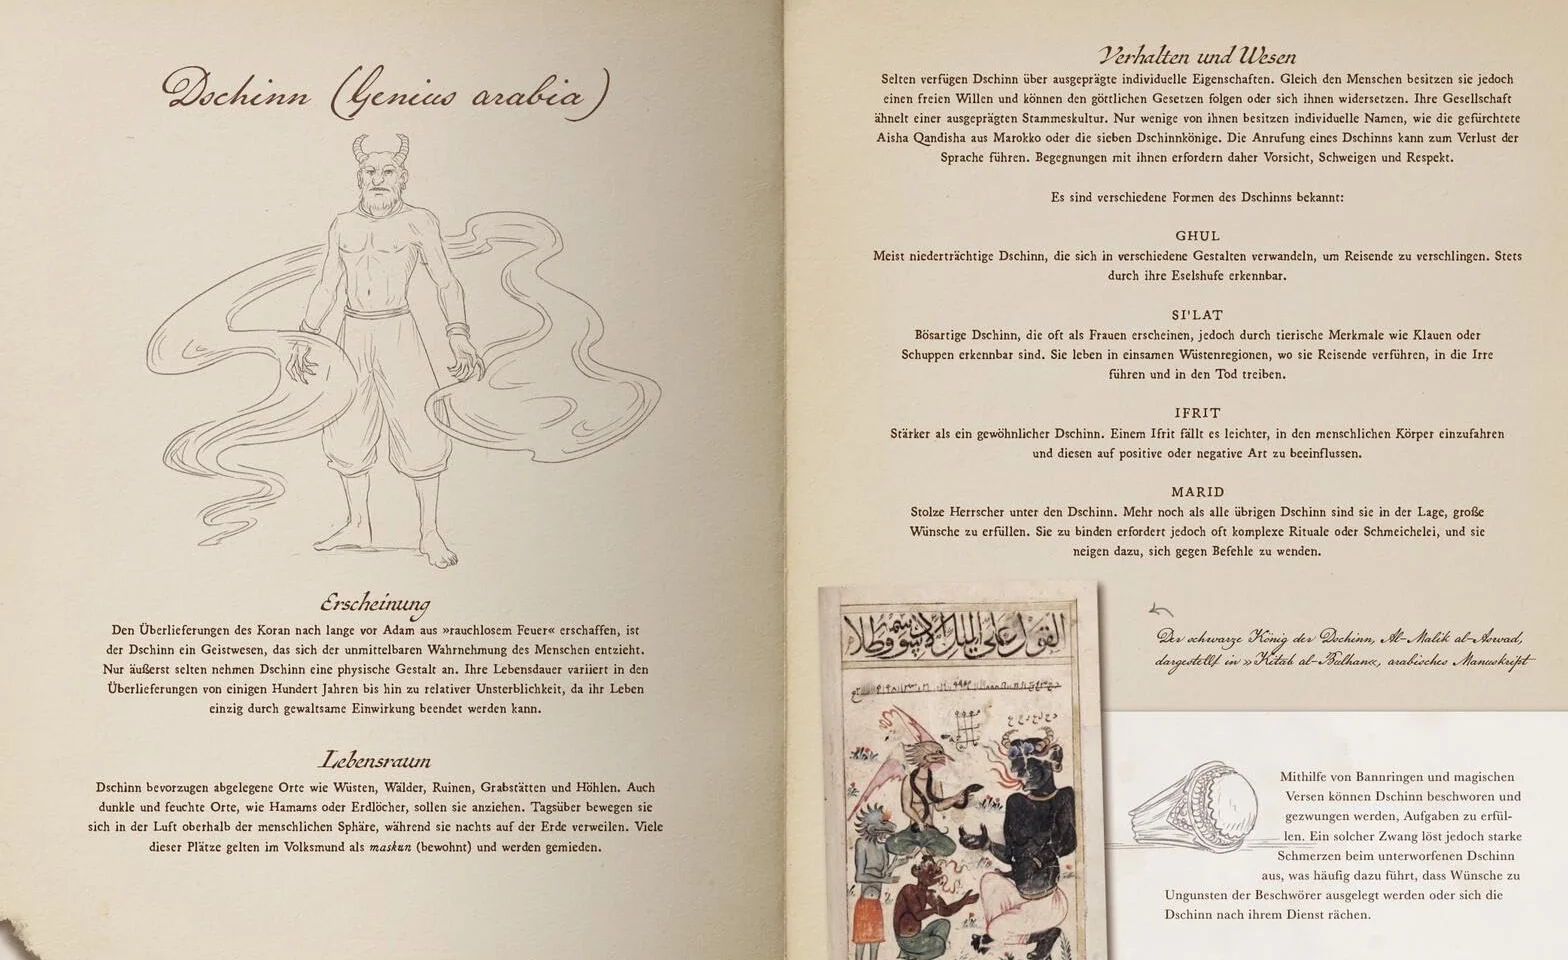 Dschinn (Genius arabia)
Erscheinung
Den Überlieferungen des Koran nach lange vor Adam aus »rauchlosem Feuer« erschaffen, ist
der Dschinn ein Geistwesen, das sich der unmittelbaren Wahrnehmung des Menschen entzieht.
Nur äußerst selten nehmen Dschinn eine physische Gestalt an. Ihre Lebensdauer variiert in den
Überlieferungen von einigen Hundert Jahren bis hin zu relativer Unsterblichkeit, da ihr Leben
einzig durch gewaltsame Einwirkung beendet werden kann.
Lebensraum
Dschinn bevorzugen abgelegene Orte wie Wüsten, Wälder, Ruinen, Grabstätten und Höhlen. Auch
dunkle und feuchte Orte, wie Hamams oder Erdlöcher, sollen sie anziehen. Tagsüber bewegen sie
sich in der Luft oberhalb der menschlichen Sphäre, während sie nachts auf der Erde verweilen. Viele
dieser Plätze gelten im Volksmund als maskun (bewohnt) und werden gemieden.
Verhalten und Wesen
Selten verfügen Dschinn über ausgeprägte individuelle Eigenschaften. Gleich den Menschen besitzen sie jedoch
einen freien Willen und können den göttlichen Gesetzen folgen oder sich ihnen widersetzen. Ihre Gesellschaft
ähnelt einer ausgeprägten Stammeskultur. Nur wenige von ihnen besitzen individuelle Namen, wie die gefürchtete
Aisha Qandisha aus Marokko oder die sieben Dschinnkönige. Die Anrufung eines Dschinns kann zum Verlust der
Sprache führen. Begegnungen mit ihnen erfordern daher Vorsicht, Schweigen und Respekt.
Es sind verschiedene Formen des Dschinns bekannt:
GHUL
Meist niederträchtige Dschinn, die sich in verschiedene Gestalten verwandeln, um Reisende zu verschlingen. Stets
durch ihre Eselshufe erkennbar.
SI'LAT
Bösartige Dschinn, die oft als Frauen erscheinen, jedoch durch tierische Merkmale wie Klauen oder
Schuppen erkennbar sind. Sie leben in einsamen Wüstenregionen, wo sie Reisende verführen, in die Irre
führen und in den Tod treiben.
IFRIT
Stärker als ein gewöhnlicher Dschinn. Einem Ifrit fällt es leichter, in den menschlichen Körper einzufahren
und diesen auf positive oder negative Art zu beeinflussen.
MARID
Stolze Herrscher unter den Dschinn. Mehr noch als alle übrigen Dschinn sind sie in der Lage, große
Wünsche zu erfüllen. Sie zu binden erfordert jedoch oft komplexe Rituale oder Schmeichelei, und sie
neigen dazu, sich gegen Befehle zu wenden.
القول على الملك الاسود
Der schwarze König der Dschinn, Al-Malik al-Aswad,
dargestellt in »Kitab al-Bulhan«, arabisches Manuskript
Mithilfe von Bannringen und magischen
Versen können Dschinn beschworen und
gezwungen werden, Aufgaben zu erfül-
len. Ein solcher Zwang löst jedoch starke
Schmerzen beim unterworfenen Dschinn
aus, was häufig dazu führt, dass Wünsche zu
Ungunsten der Beschwörer ausgelegt werden oder sich die
Dschinn nach ihrem Dienst rächen.